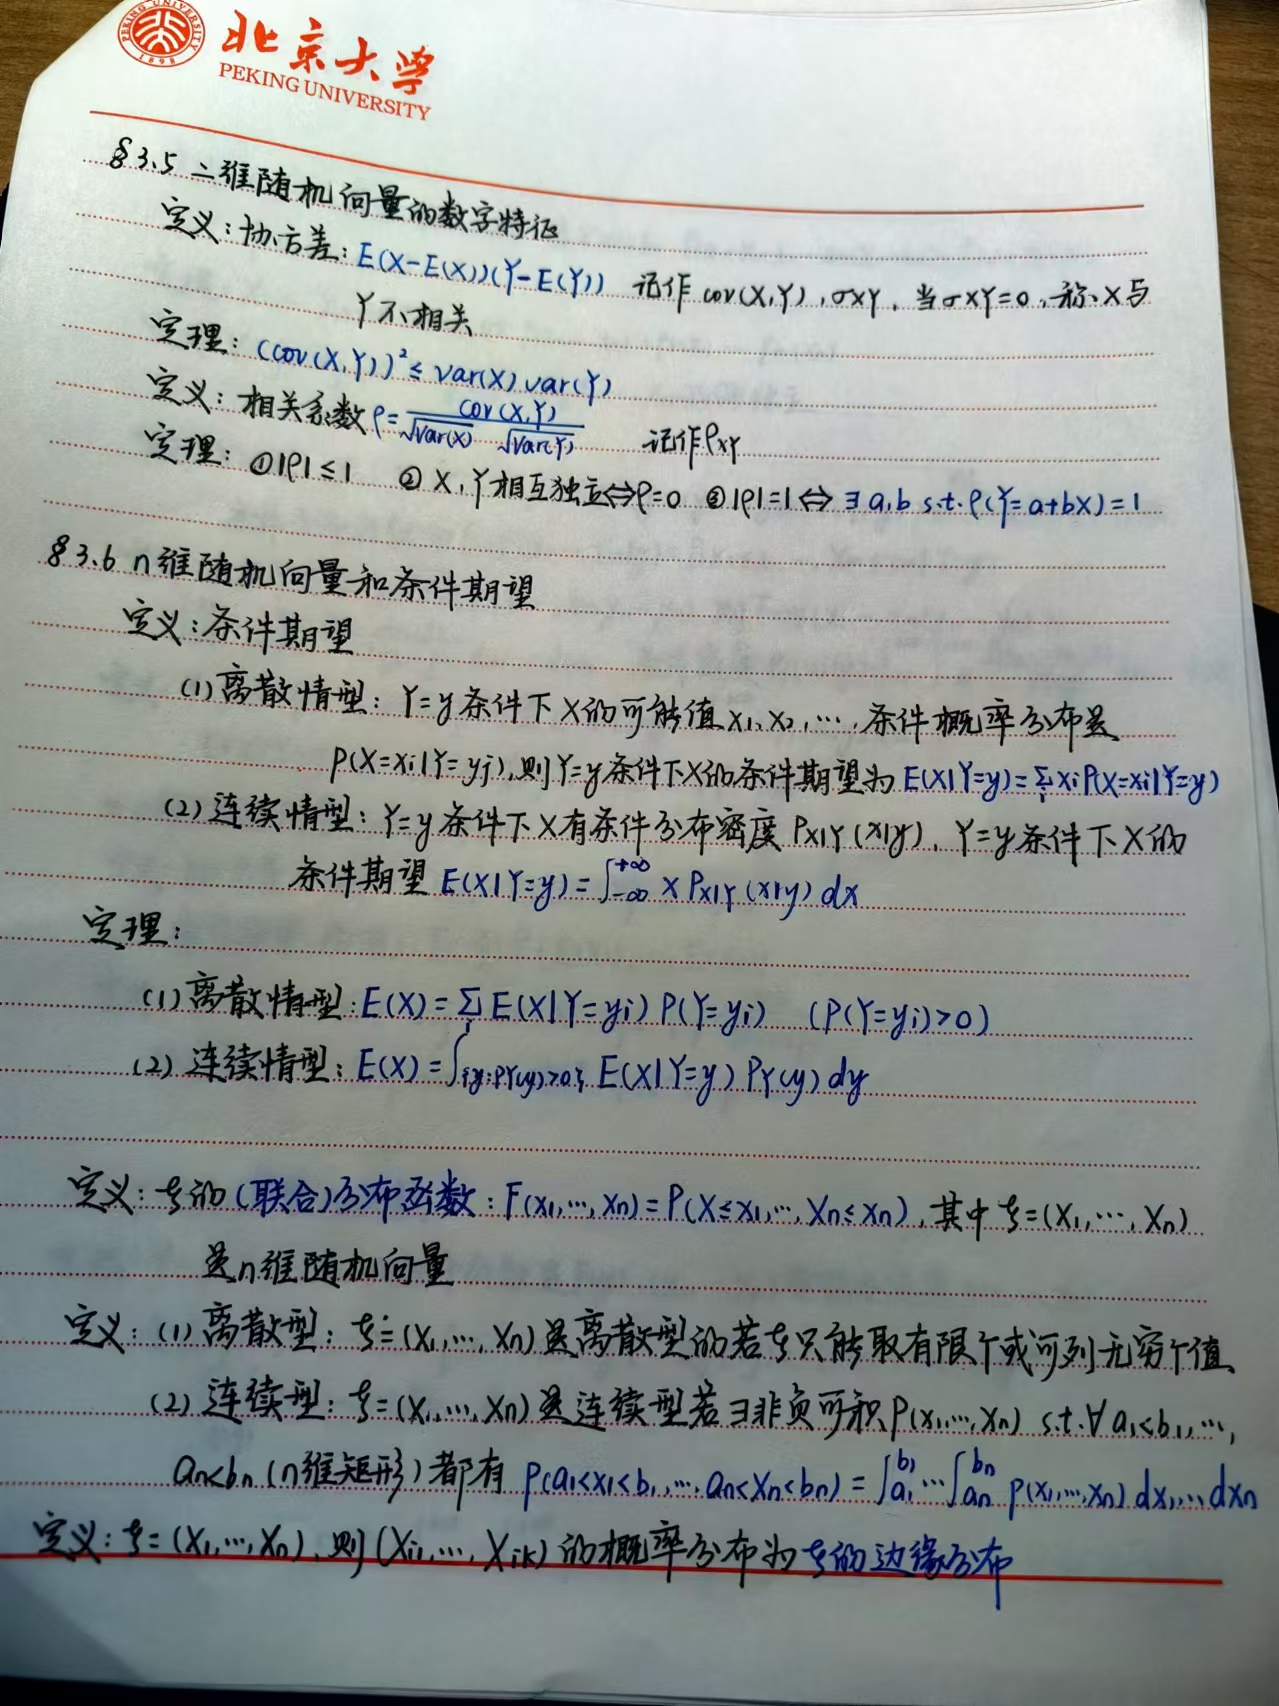 北京大学
PEKING UNIVERSITY
PEKING UNIVERSITY
1898
§3.5 二维随机向量的数字特征
定义：协方差：E(X-E(X))(Y-E(Y)) 记作 cov(X,Y), σXY, 当σXY=0, 称X与
Y不相关
定理：(cov(X,Y))² ≤ var(X) var(Y)
定义：相关系数 ρ = cov(X,Y) / √var(X) √var(Y) 记作ρXY
定理：①|ρ| ≤ 1 ② X, Y相互独立⇔ρ=0 ③|ρ|=1⇔∃ a,b s.t. P(Y=a+bX)=1
§3.6 n维随机向量和条件期望
定义：条件期望
(1) 离散情型：Y=y条件下X的可能值x1, x2, …, 条件概率分布是
P(X=xi|Y=yj), 则Y=y条件下X的条件期望为 E(X|Y=y)=∑i xi P(X=xi|Y=y)
(2) 连续情型：Y=y条件下X有条件分布密度 PX|Y(x|y), Y=y条件下X的
条件期望 E(X|Y=y)=∫_{-∞}^{+∞} x PX|Y(x|y) dx
定理：
(1) 离散情型：E(X)=∑i E(X|Y=yi) P(Y=yi) (P(Y=yi)>0)
(2) 连续情型：E(X)=∫_{{y:PY(y)>0}} E(X|Y=y) PY(y) dy
定义：ξ的(联合)分布函数：F(x1,…,xn)=P(X≤x1,…,Xn≤xn), 其中ξ=(X1,…,Xn)
是n维随机向量
定义：(1) 离散型：ξ=(X1,…,Xn)是离散型的若ξ只能取有限个或可列无穷个值
(2) 连续型：ξ=(X1,…,Xn)是连续型若∃非负可积P(x1,…,xn) s.t.∀a1<b1,…,
an<bn (n维矩形)都有 P(a1<x1<b1,…,an<Xn<bn)=∫_{a1}^{b1}…∫_{an}^{bn} p(x1,…,xn) dx1…dxn
定义：ξ=(X1,…,Xn), 则(Xi1,…,Xik)的概率分布为ξ的边缘分布